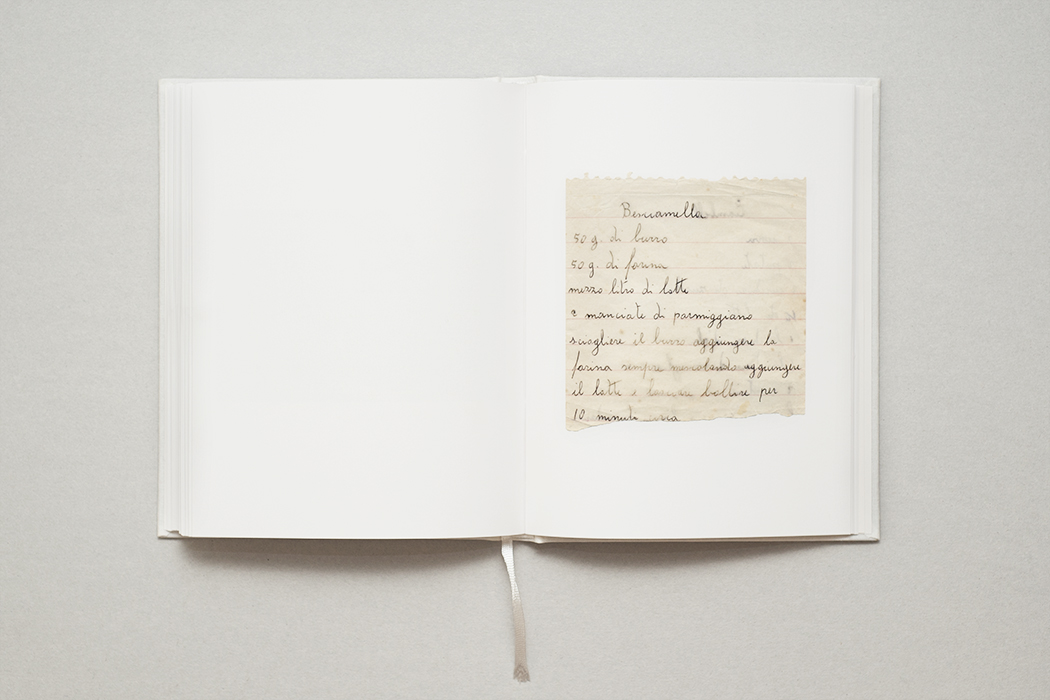 Besciamella
50 g. di burro
50 g. di farina
mezzo litro di latte
2 manciate di parmiggiano
sciogliere il burro aggiungere la
farina sempre mescolando aggiungere
il latte e lasciare bollire per
10 minuti circa